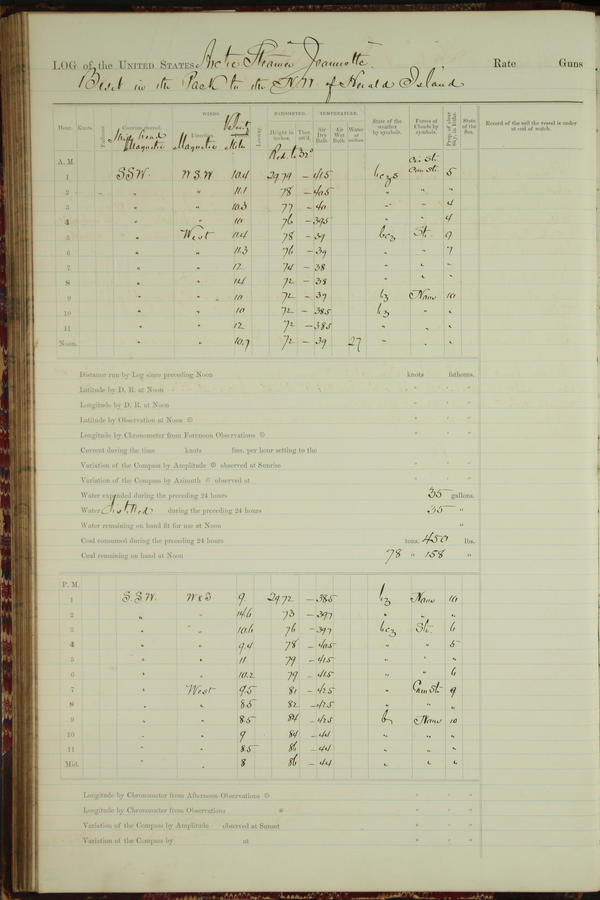 LOG of the UNITED STATES Arctic Steamer Jeannette Rate Guns
Beset in the Pack to the NW of Herald Island
WINDS. BAROMETER. TEMPERATURE.
Hour. Knots. Fathoms. Courses steered. Direction. Velocity Leeway. Height in inches. Ther. att'd. Air Dry Bulb. Air Wet Bulb. Water at surface. State of the weather by symbols. Forms of Clouds by symbols. Prop. of clear Sky, in 10ths. State of the Sea. Record of the sail the vessel is under at end of watch.
Ship's head Magnetic Magnetic Red. to 32°
A. M. Cir St.
1 SSW. WSW 10.4 29 79 -41.5 bczs Cum St. 5
2 " " 11.1 78 -40.5 " " "
3 " " 10.3 77 -40 " " 4
4 " " 10 76 -39.5 " " 4
5 " West 10.4 78 -39 bcz St. 9
6 " " 11.3 76 -39 " " 7
7 " " 12. 74 -38 " " "
8 " " 14 72 -38 " " "
9 " " 10 72 -39 bz None 10
10 " " 10 72 -38.5 bz " "
11 " " 12 72 -38.5 " " "
Noon. " " 10.7 72 -39 27 " " "
Distance run by Log since preceding Noon knots fathoms.
Latitude by D. R. at Noon ° ′ ″
Longitude by D. R. at Noon ° ′ ″
Latitude by Observation at Noon ☉ ° ′ ″
Longitude by Chronometer from Forenoon Observations ☉ ° ′ ″
Current during the time knots fms. per hour setting to the
Variation of the Compass by Amplitude ☉ observed at Sunrise ° ′ ″
Variation of the Compass by Azimuth ☉ observed at ° ′ ″
Water expended during the preceding 24 hours 35 gallons.
Water distilled during the preceding 24 hours 35 "
Water remaining on hand fit for use at Noon "
Coal consumed during the preceding 24 hours tons. 450 lbs.
Coal remaining on hand at Noon 78 " 158 "
P. M.
1 SSW. W&S 9. 29 72 -38.5 bz None 10
2 " " 14.6 73 -39.7 " " "
3 " " 10.6 76 -39.7 bcz St. 6
4 " " 9.4 78 -40.5 " " 5
5 " " 11 79 -41.5 " " "
6 " " 10.2 79 -41.5 " " 6
7 " West 9.5 81 -42.5 " Cum St. 9
8 " " 8.5 82 -42.5 " " "
9 " " 8.5 84 -42.5 b None 10
10 " " 9 84 -44 " " "
11 " " 8.5 86 -44 " " "
Mid. " " 8 86 -44 " " "
Longitude by Chronometer from Afternoon Observations ☉ ° ′ ″
Longitude by Chronometer from Observations * ° ′ ″
Variation of the Compass by Amplitude observed at Sunset ° ′ ″
Variation of the Compass by at ° ′ ″